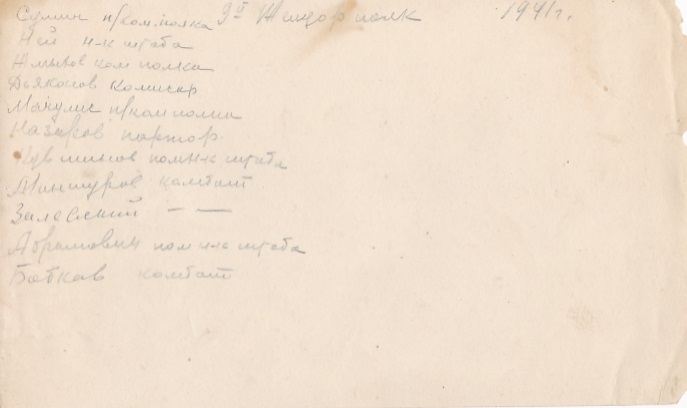 Сумин п/ком.полка 9й Житдор полк 1941 г.
Ней н-к штаба
Жмыхов ком полка
Дьяконов комисар
Мачулис п/ком полка
Назаров парторг
пом н-к штаба
Манжуров комбат
Залеский — —
Абрамович пом н-к штаба
Бобков комбат